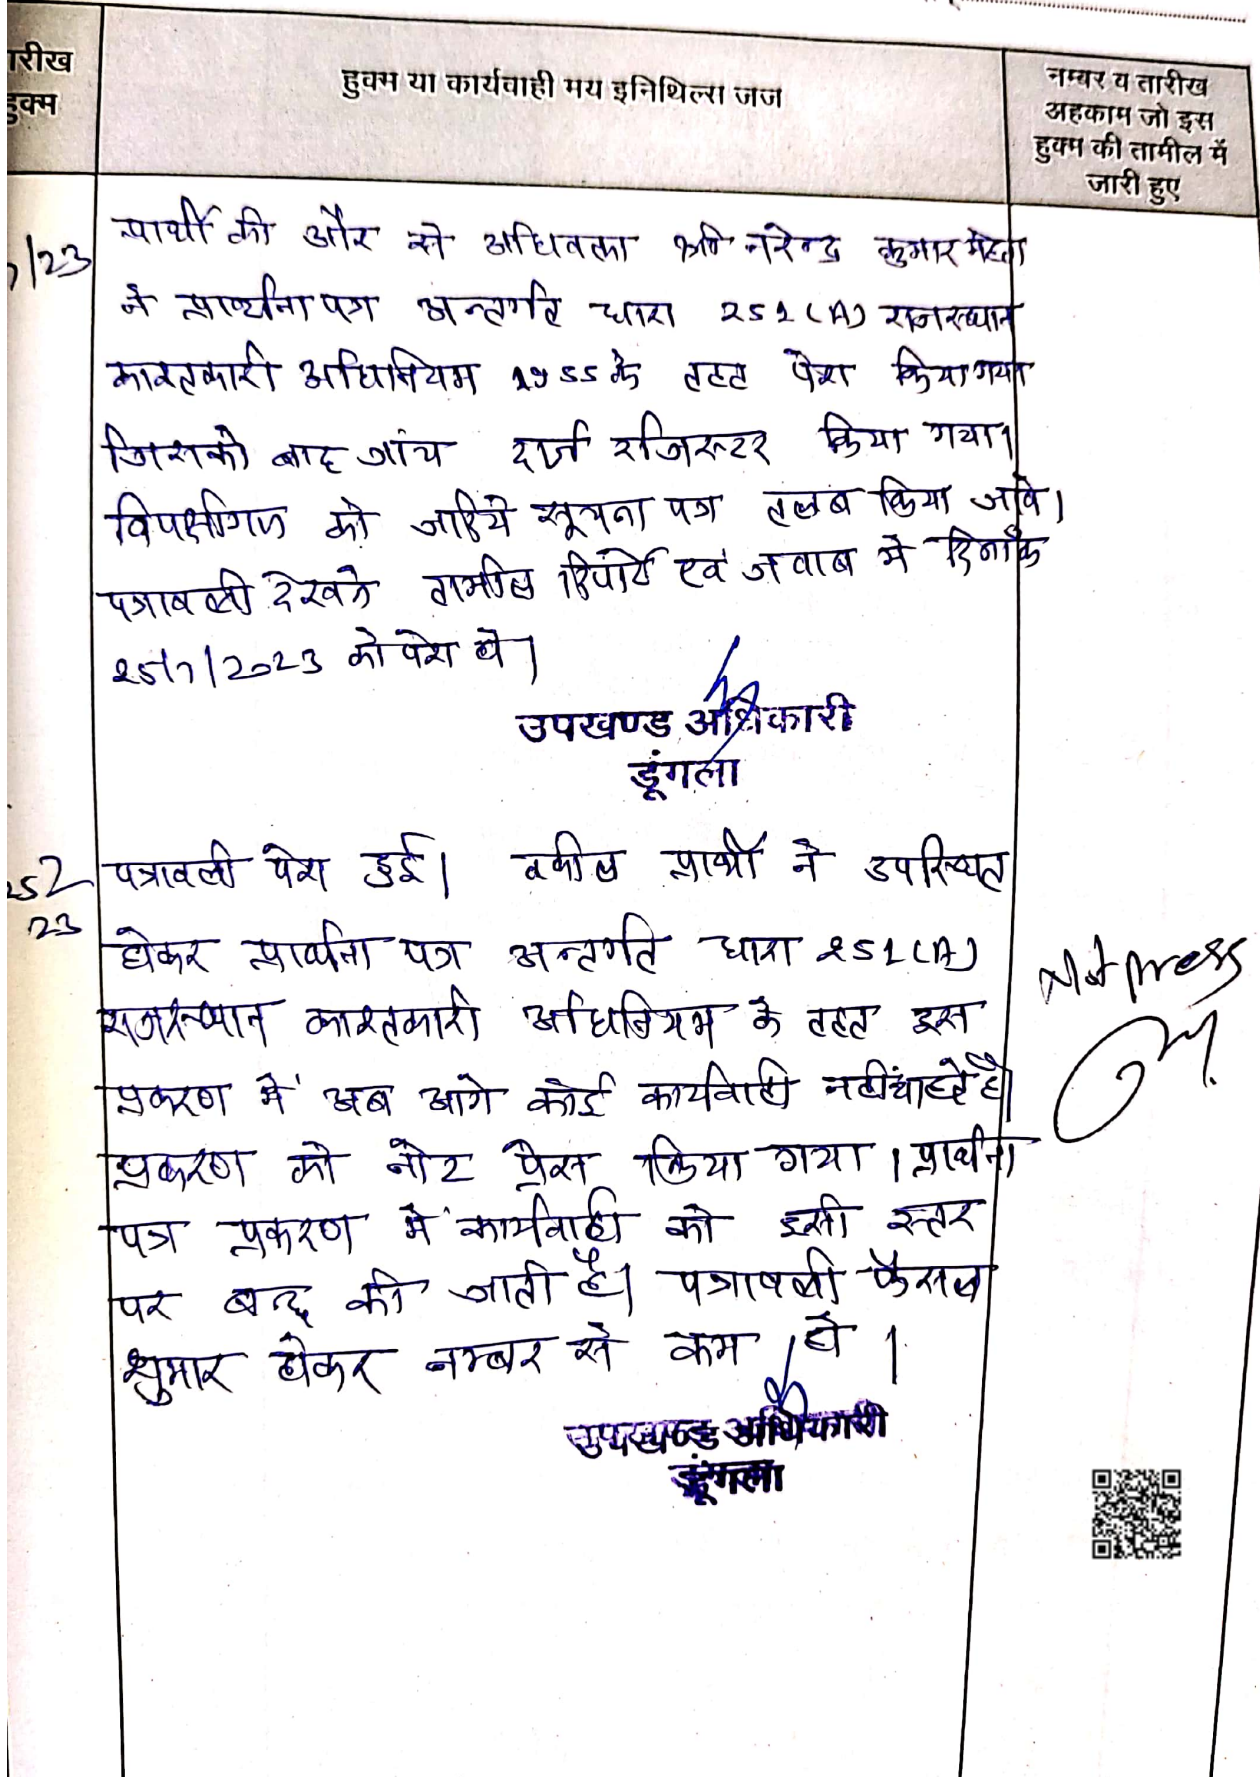 तारीख
हुक्म
हुक्म या कार्यवाही मय इनिथिल्स जज
नम्बर व तारीख
अहकाम जो इस
हुक्म की तामील में
जारी हुए
/23
प्रार्थी की और से अधिवक्ता श्री नरेन्द्र कुमार मेहता
ने प्रार्थना पत्र अन्तर्गत धारा 251(A) राजस्थान
काश्तकारी अधिनियम 1955 के तहत पेश किया गया
जिसको बाद जांच दर्ज रजिस्टर किया गया।
विपक्षीगण को जरिये सूचना पत्र तलब किया जावे।
पत्रावली देखने तामील रिपोर्ट एवं जवाब मे दिनांक
25/7/2023 को पेश हो।
उपखण्ड अधिकारी
डूंगला
25 7
23
पत्रावली पेश हुई। वकील प्रार्थी ने उपस्थित
होकर प्रार्थना पत्र अन्तर्गत धारा 251(A)
राजस्थान काश्तकारी अधिनियम के तहत इस
प्रकरण में अब आगे कोई कार्यवाही नहीं चाहते है।
प्रकरण को नोट प्रेस किया गया। प्रार्थना
पत्र प्रकरण में कार्यवाही को इसी स्तर
पर बन्द की जाती है। पत्रावली फैसल
शुमार होकर नम्बर से कम हो।
Not press
उपखण्ड अधिकारी
डूंगला